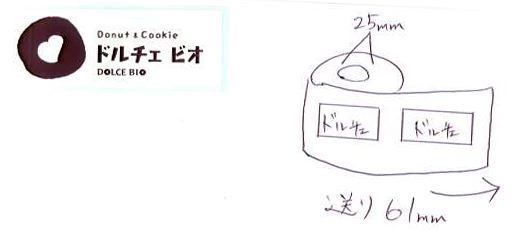 Donut & Cookie
ドルチェ ビオ
DOLCE BIO
25mm
ドルチェ
ドルチェ
送り 61mm